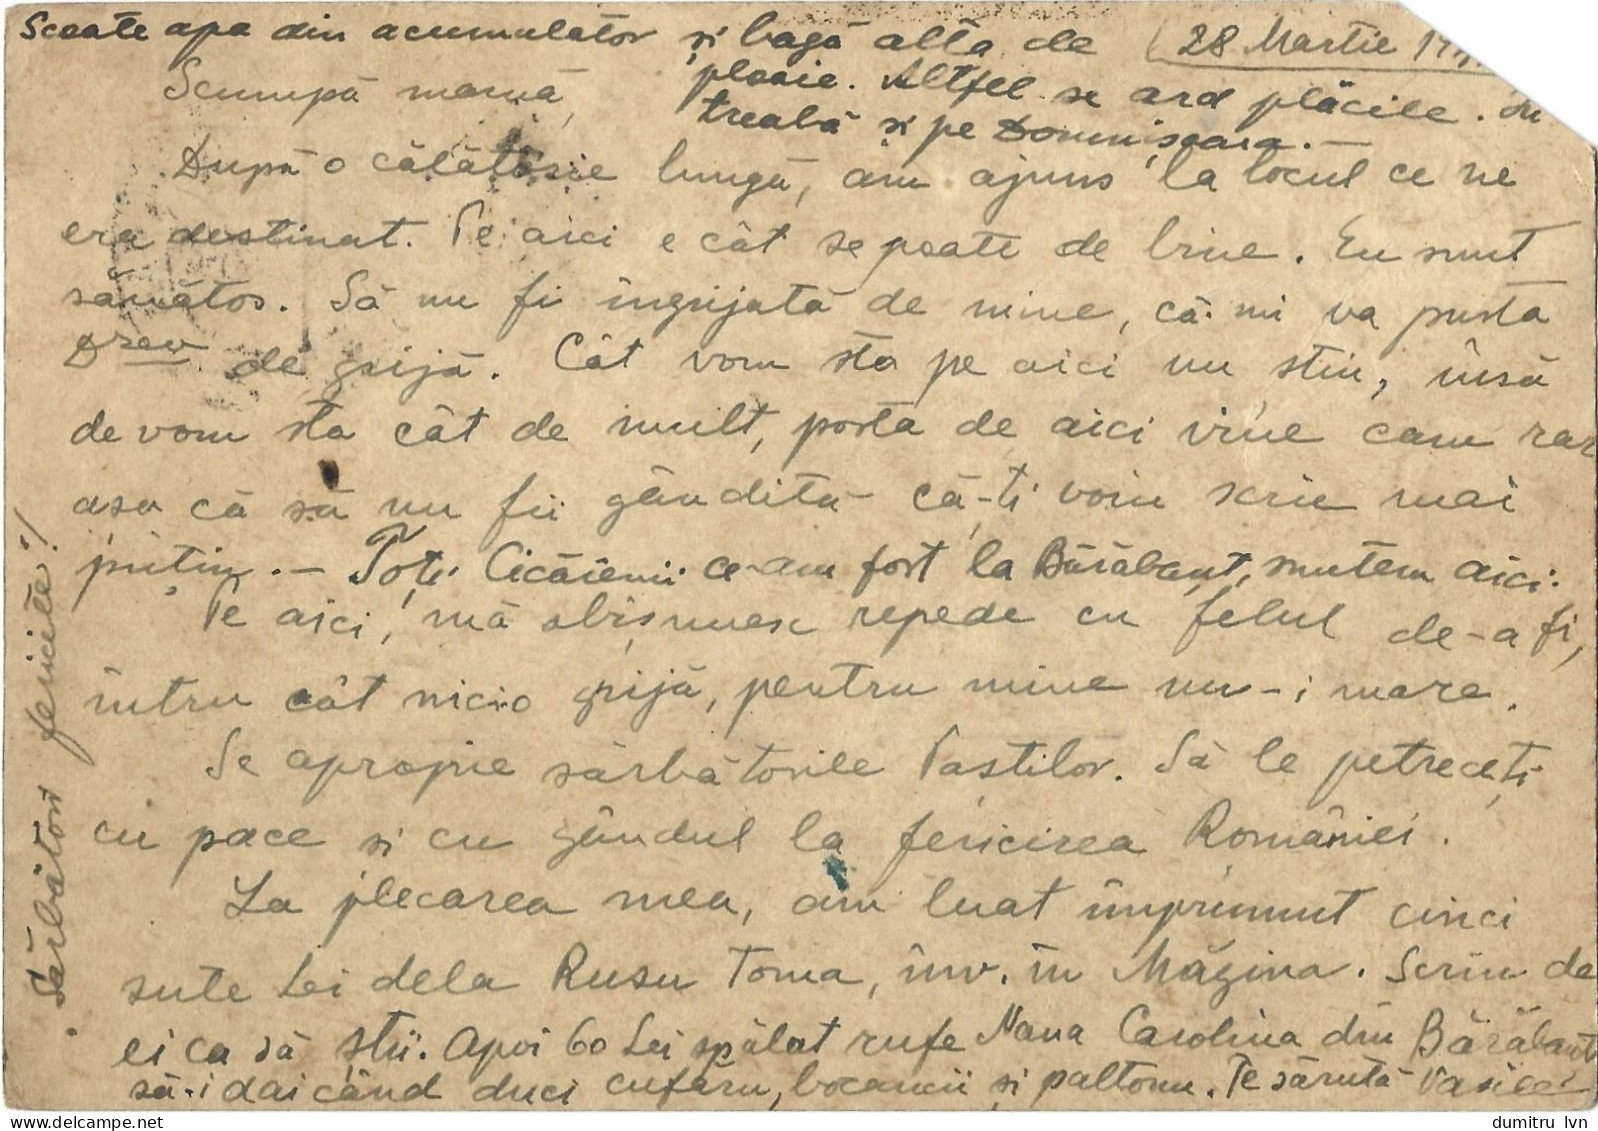 Scoate apa din acumulator și bagă alta de
ploaie. Altfel se ard plăcile.
treabă și pe Domnișoara. —
28 Martie
Scumpă mamă,
După o călătorie lungă, am ajuns la locul ce ne
era destinat. Pe aici e cât se poate de bine. Eu sunt
sănătos. Să nu fi îngrijată de mine, că mi va purta
de grijă. Cât vom sta pe aici nu știu, însă
de vom sta cât de mult, poșta de aici vine cam rar
așa că să nu fii gândită că-ți voiu scrie mai
puțin. — Toți Cicăienii ce-am fost la Bărăbanț, suntem aici.
Pe aici, mă obișnuesc repede cu felul de-a fi,
întru cât nicio grijă, pentru mine nu-i mare.
Se apropie sărbătorile Paștilor. Să le petreceți
cu pace și cu gândul la fericirea României.
La plecarea mea, am luat împrumut cinci
sute Lei dela Rusu Toma, înv. în Măgina. Scriu de
ei ca să știi. Apoi 60 Lei spălat rufe Nana Carolina din Bărăbanț
să-i dai când duci cufăru, bocancii și paltonu. Te sărută Vasile
Sărbători fericite!
dumitru_lvn